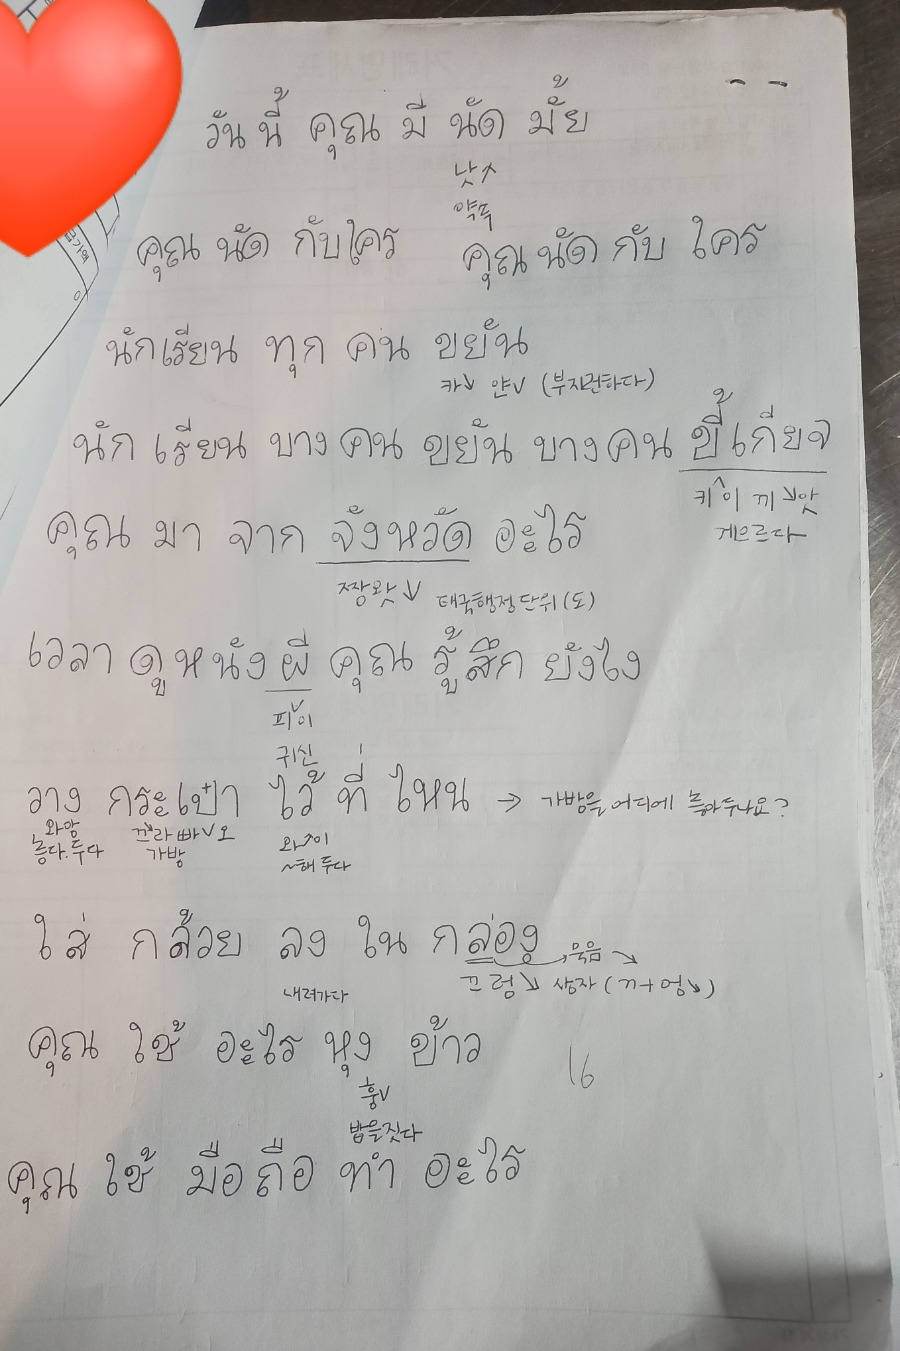 วันนี้ คุณ มี นัด มั้ย
낫↗
약속
คุณ นัด กับใคร คุณ นัด กับ ใคร
นักเรียน ทุก คน ขยัน
카↘ 얀∨ (부지런하다)
นัก เรียน บาง คน ขยัน บาง คน ขี้เกียจ
키^이 끼↘얏
게으르다
คุณ มา จาก จังหวัด อะไร
짱왓↗ 태국행정단위(도)
เวลา ดู หนัง ผี คุณ รู้สึก ยังไง
피∨이
귀신
วาง กระเป๋า ไว้ ที่ ไหน → 가방을 어디에 놓아두나요?
와앙 끄라빠∨오 와↗이
놓다.두다 가방 ~해 두다
ใส่ กล้วย ลง ใน กล่อง
묵음
내려가다 끄렁↘ 상자
คุณ ใช้ อะไร หุง ข้าว
16
훙∨
밥을짓다
คุณ ใช้ มือ ถือ ทำ อะไร